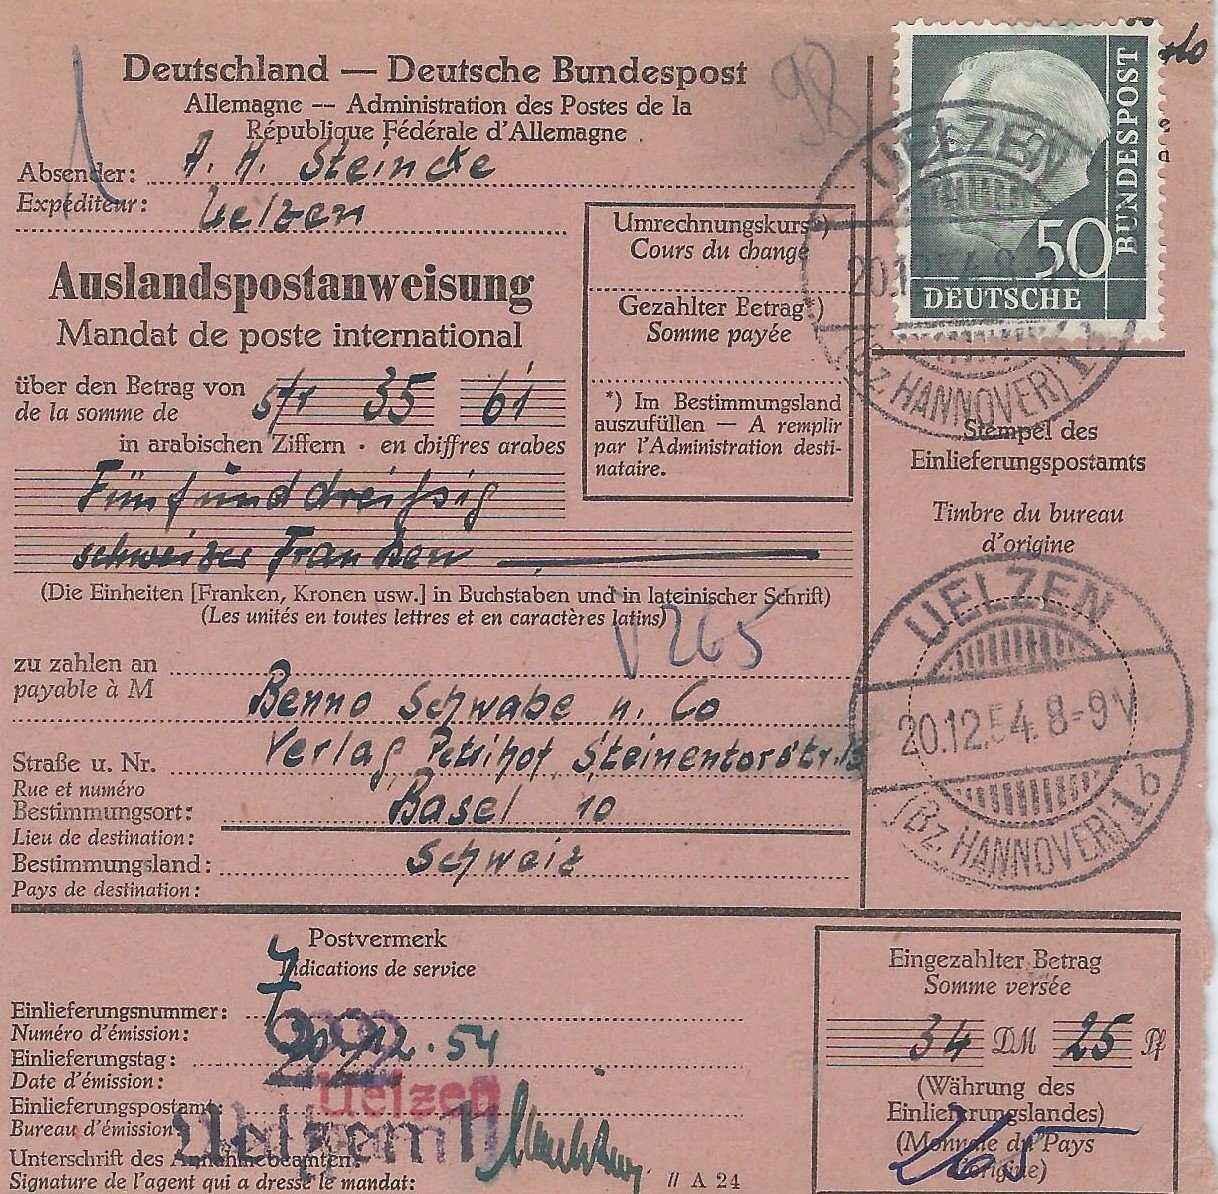 Deutschland — Deutsche Bundespost
Allemagne -- Administration des Postes de la
République Fédérale d'Allemagne
98
Absender: A. H. Steincke
Expéditeur: Uelzen
Auslandspostanweisung
Mandat de poste international
über den Betrag von
de la somme de
sfr 35 61
in arabischen Ziffern · en chiffres arabes
Fünfunddreißig
schweizer Franken
(Die Einheiten [Franken, Kronen usw.] in Buchstaben und in lateinischer Schrift)
(Les unités en toutes lettres et en caractères latins)
265
Umrechnungskurs*)
Cours du change
Gezahlter Betrag*)
Somme payée
*) Im Bestimmungsland
auszufüllen — A remplir
par l'Administration desti-
nataire.
DEUTSCHE
BUNDESPOST
50
UELZEN
(Bz. HANNOVER) 1 b
Stempel des
Einlieferungspostamts
Timbre du bureau
d'origine
UELZEN
20.12.54. 8-9 V
(Bz. HANNOVER) 1 b
zu zahlen an
payable à M
Benno Schwabe u. Co
Verlag Petrihof Steinentorstr. 13
Straße u. Nr.
Rue et numéro
Bestimmungsort: Basel 10
Lieu de destination:
Bestimmungsland: Schweiz
Pays de destination:
Postvermerk
Indications de service
Einlieferungsnummer:
Numéro d'émission:
Einlieferungstag: 20.12.54
Date d'émission:
Einlieferungspostamt:
Uelzen
Bureau d'émission:
Uelzen 1
Unterschrift des Annahmebeamten:
Signature de l'agent qui a dressé le mandat:
// A 24
Eingezahlter Betrag
Somme versée
34 DM 25 Pf
(Währung des
Einlieferungslandes)
(Monnaie du Pays
d'origine)
265